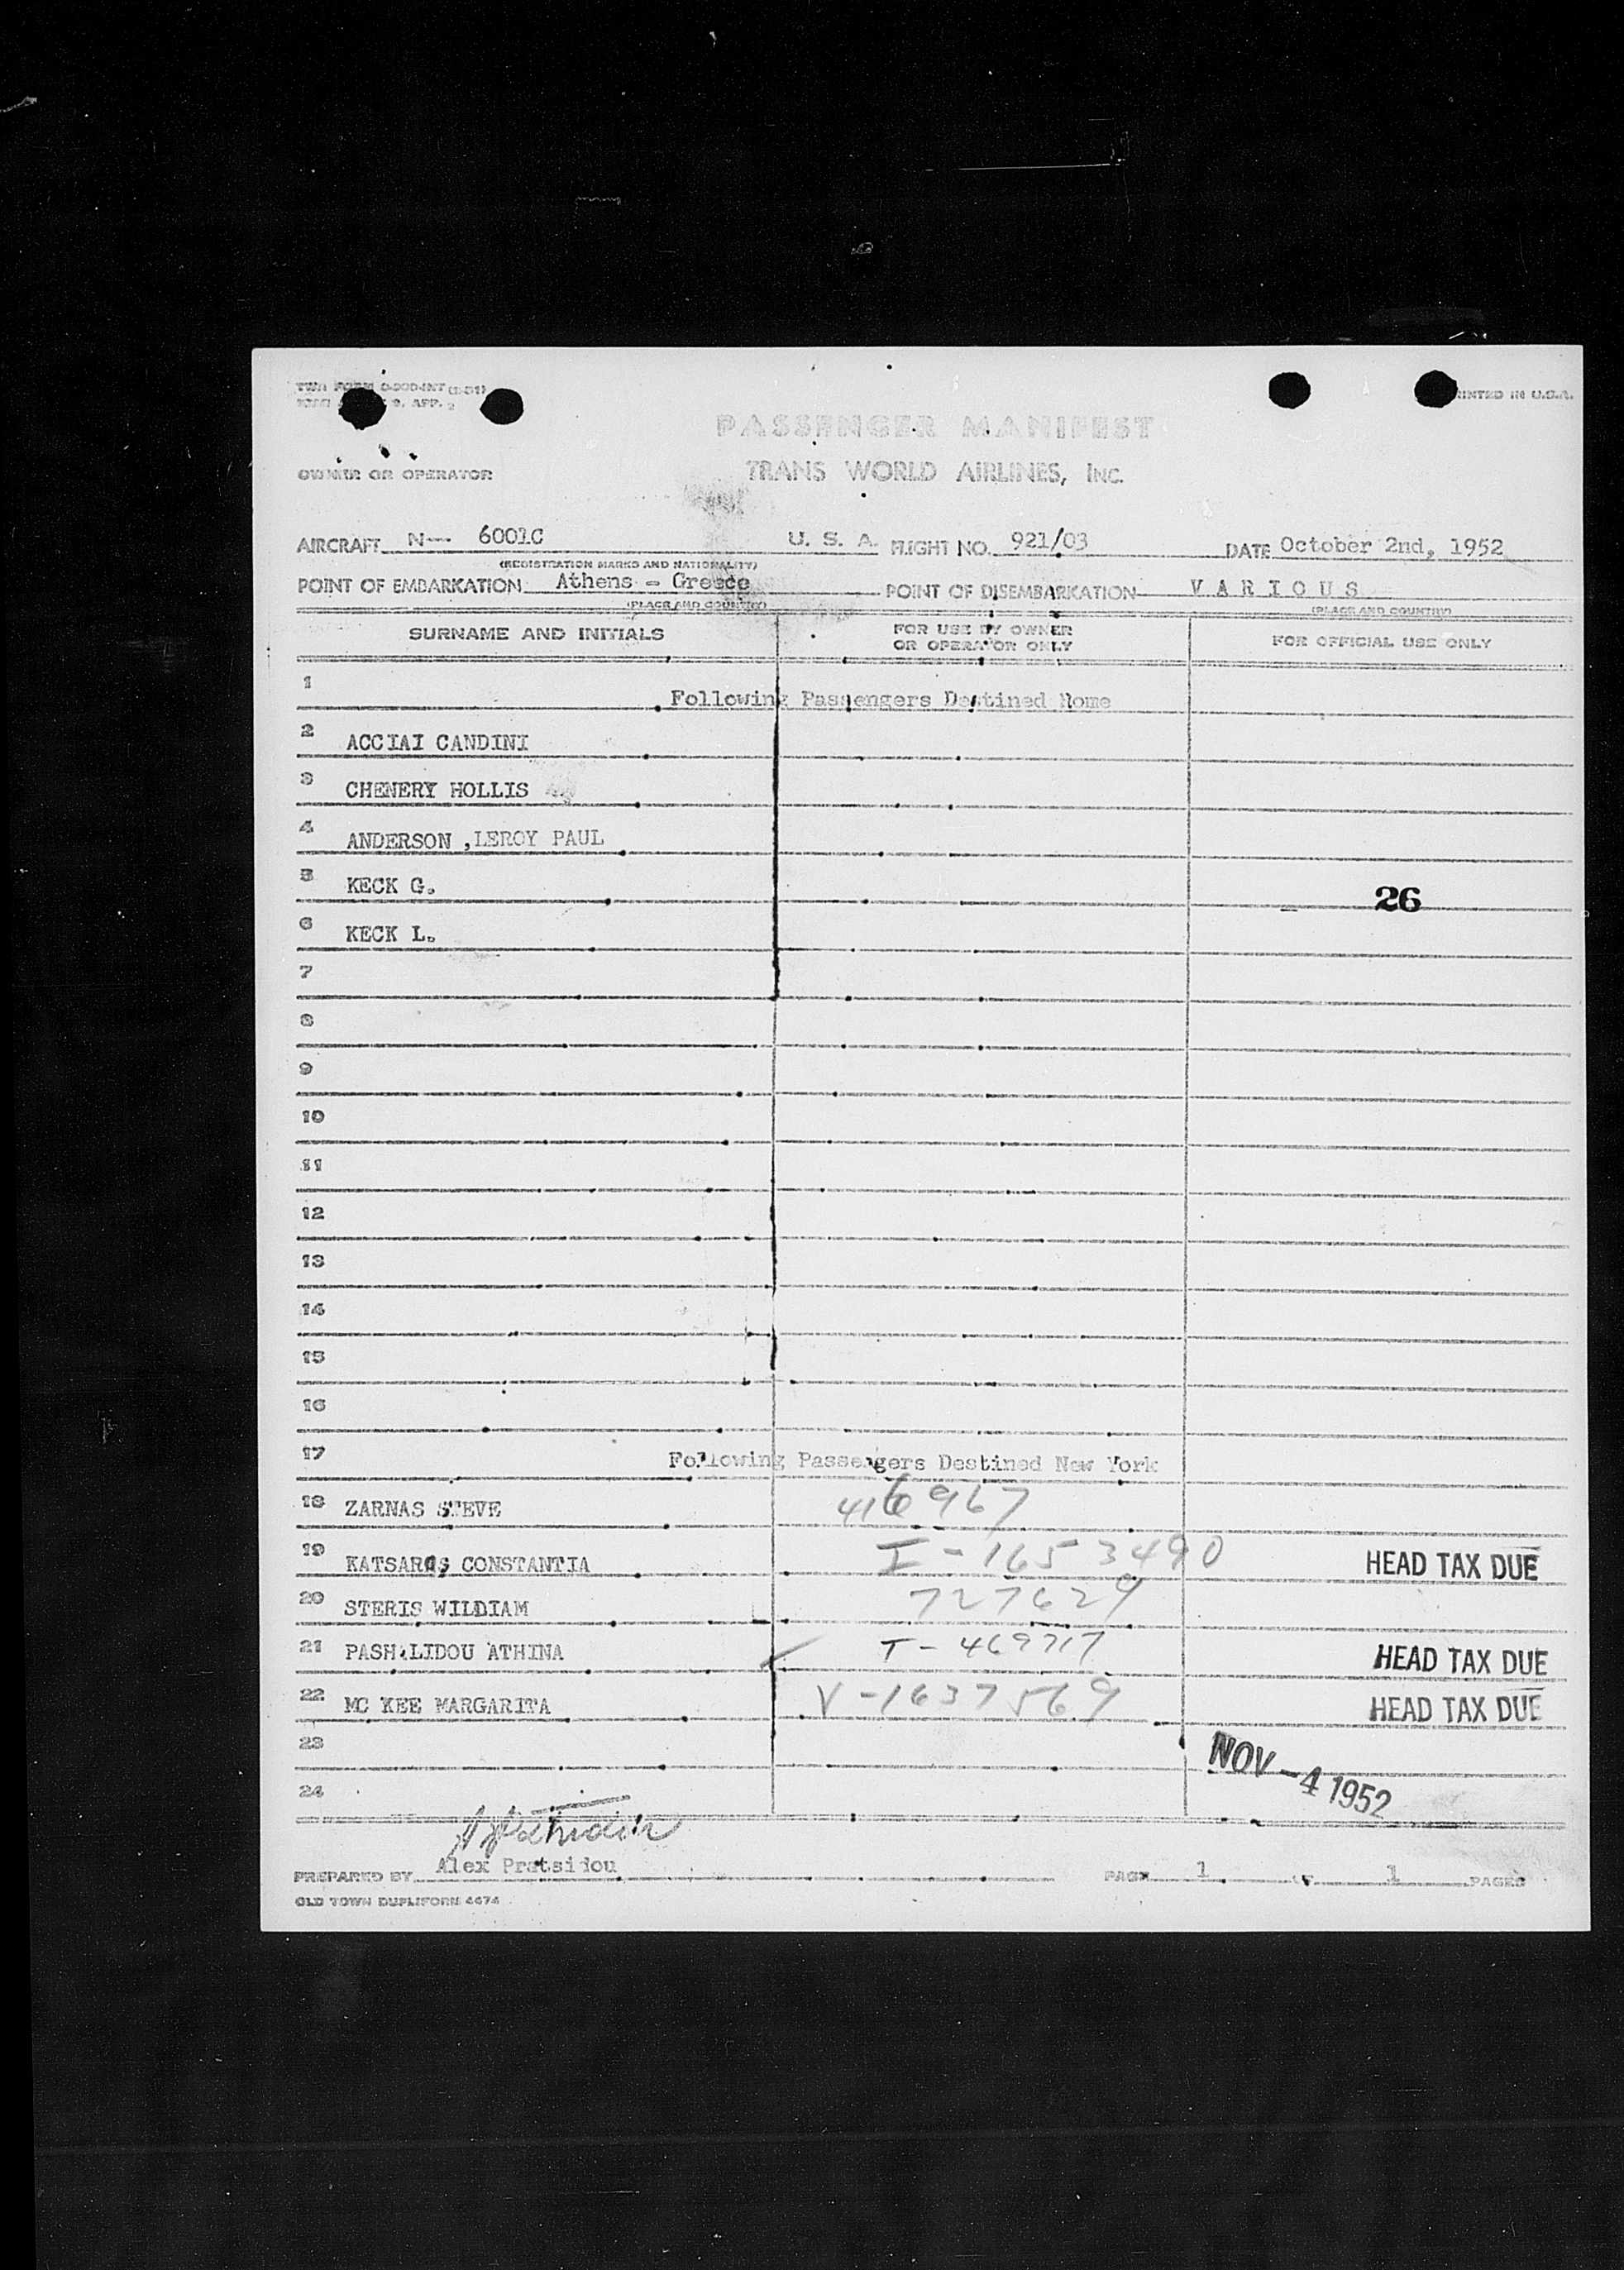 TWA FORM O-200-INT (1-51)
9. APP. 2
PRINTED IN U.S.A.
PASSENGER MANIFEST
OWNER OR OPERATOR TRANS WORLD AIRLINES, INC.
AIRCRAFT N-- 6001C U. S. A. FLIGHT NO. 921/03 DATE October 2nd, 1952
(REGISTRATION MARKS AND NATIONALITY)
POINT OF EMBARKATION Athens - Greece POINT OF DISEMBARKATION V A R I O U S
(PLACE AND COUNTRY) (PLACE AND COUNTRY)
SURNAME AND INITIALS FOR USE BY OWNER OR OPERATOR ONLY FOR OFFICIAL USE ONLY
1 Following Passengers Destined Rome
2 ACCIAI CANDINI
3 CHENERY HOLLIS
4 ANDERSON ,LEROY PAUL
5 KECK G. 26
6 KECK L.
7
8
9
10
11
12
13
14
15
16
17 Following Passengers Destined New York
18 ZARNAS STEVE 416967
19 KATSAROS CONSTANTIA I-1653490 HEAD TAX DUE
20 STERIS WILDIAM 727629
21 PASHALIDOU ATHINA HEAD TAX DUE
22 MC KEE MARGARITA V-1637569 HEAD TAX DUE
23
NOV -4 1952
24
PREPARED BY Alex Pratsidou PAGE 1 OF 1 PAGES
OLD TOWN DUPLIFORM 4474